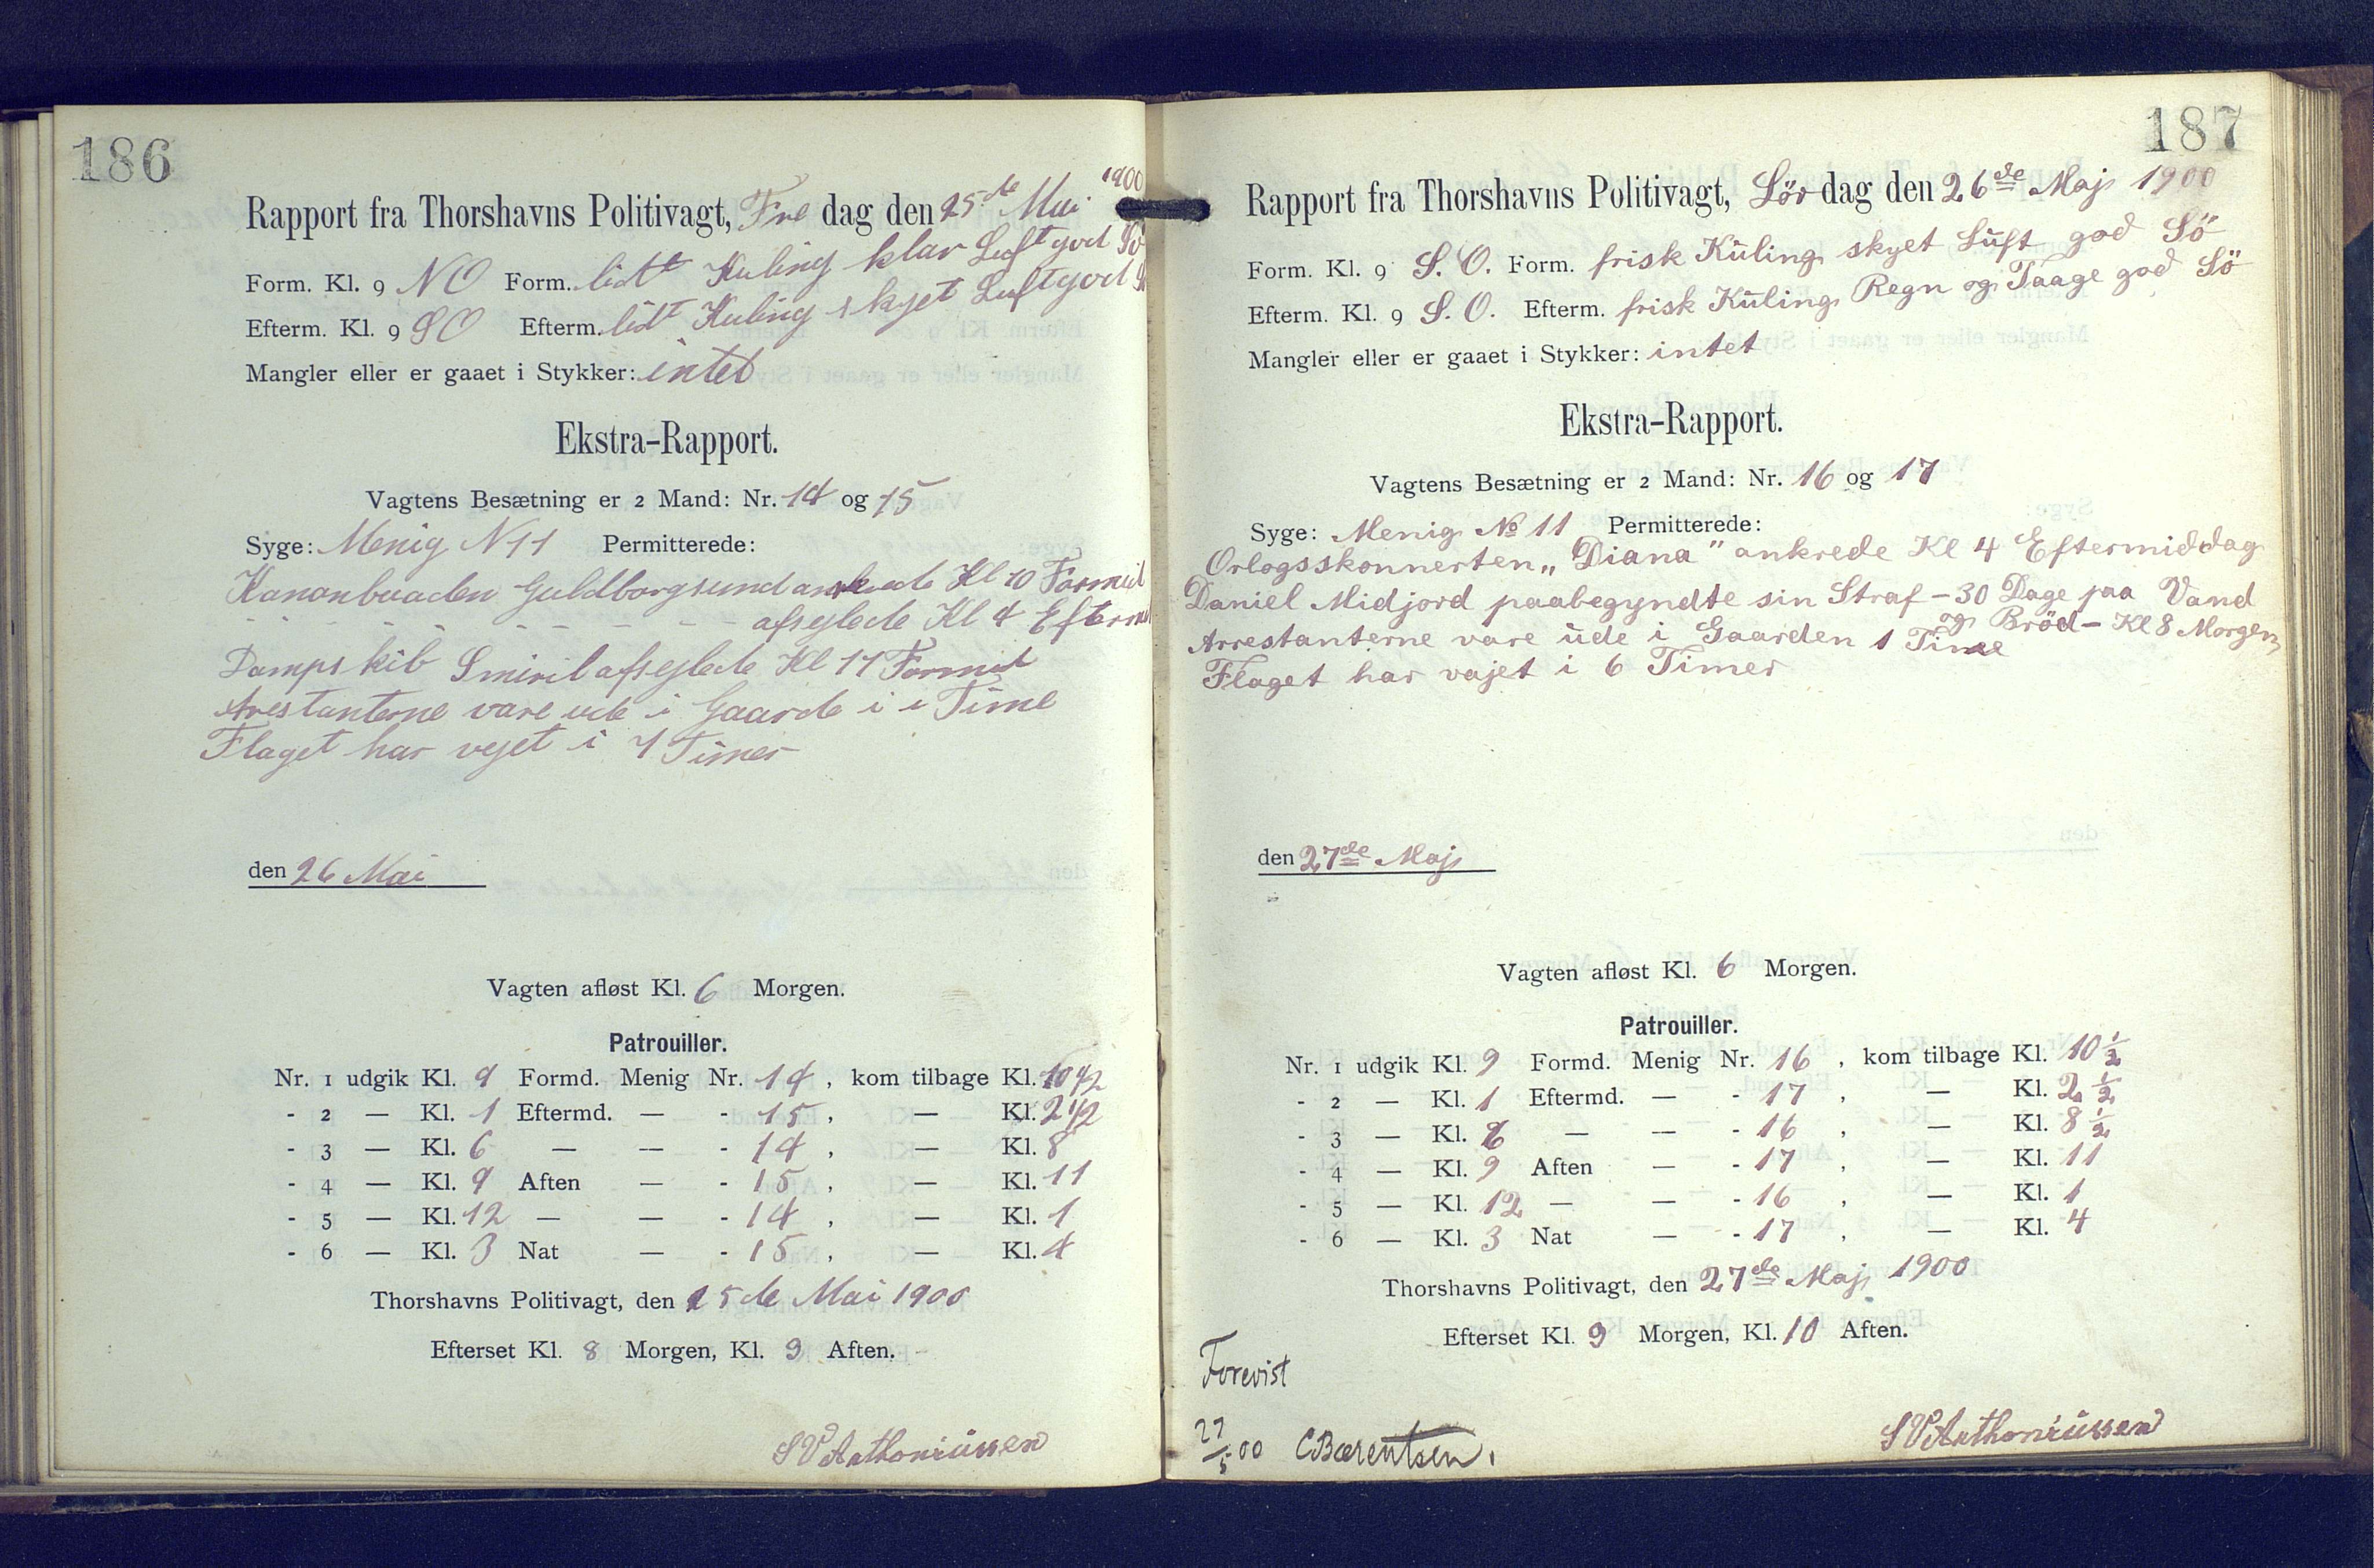 186
Rapport fra Thorshavns Politivagt, Fre dag den 25de Mai 1900
Form. Kl. 9 NO Form. lidt Kuling klar Luft god Sö
Efterm. Kl. 9 SO Efterm. lidt Kuling skyet Luft god
Mangler eller er gaaet i Stykker: intet
Ekstra-Rapport.
Vagtens Besætning er 2 Mand: Nr. 14 og 15
Syge: Menig N 11 Permitterede:
Kanonbaaden Guldborgsund ankrede Kl 10 Formid
- - - - - - - afseglede Kl 4 Efterm
Dampskib Smiril afseglede Kl 11 Formid
Arestanterne vare ude i Gaarde i 1 Time
Flaget har vejet i 7 Timer
den 26 Mai
Vagten afløst Kl. 6 Morgen.
Patrouiller.
Nr. 1 udgik Kl. 9 Formd. Menig Nr. 14, kom tilbage Kl. 10 1/2
- 2 — Kl. 1 Eftermd. — - 15, — Kl. 2 1/2
- 3 — Kl. 6 — — - 14, — Kl. 8
- 4 — Kl. 9 Aften — - 15, — Kl. 11
- 5 — Kl. 12 — — - 14, — Kl. 1
- 6 — Kl. 3 Nat — - 15, — Kl. 4
Thorshavns Politivagt, den 25de Mai 1900
Efterset Kl. 8 Morgen, Kl. 9 Aften.
SVAnthoniussen
187
Rapport fra Thorshavns Politivagt, Lör dag den 26de Maj 1900
Form. Kl. 9 S. O. Form. frisk Kuling skyet Luft god Sö
Efterm. Kl. 9 S. O. Efterm. frisk Kuling Regn og Taage god Sö
Mangler eller er gaaet i Stykker: intet
Ekstra-Rapport.
Vagtens Besætning er 2 Mand: Nr. 16 og 17
Syge: Menig № 11 Permitterede:
Orlogsskonnerten „Diana" ankrede Kl 4 Eftermiddag
Daniel Midjord paabegyndte sin Straf – 30 Dage paa Vand
og Bröd – Kl 8 Morgen
Arrestanterne vare ude i Gaarden 1 Time
Flaget har vajet i 6 Timer
den 27de Maj
Vagten afløst Kl. 6 Morgen.
Patrouiller.
Nr. 1 udgik Kl. 9 Formd. Menig Nr. 16, kom tilbage Kl. 10 1/2
- 2 — Kl. 1 Eftermd. — - 17, — Kl. 2 1/2
- 3 — Kl. — — - 16, — Kl. 8 1/2
- 4 — Kl. 9 Aften — - 17, — Kl. 11
- 5 — Kl. 12 — — - 16, — Kl. 1
- 6 — Kl. 3 Nat — - 17, — Kl. 4
Thorshavns Politivagt, den 27de Maj 1900
Efterset Kl. 9 Morgen, Kl. 10 Aften.
Forevist
27/5 00 CBærentsen.
SVAnthoniussen